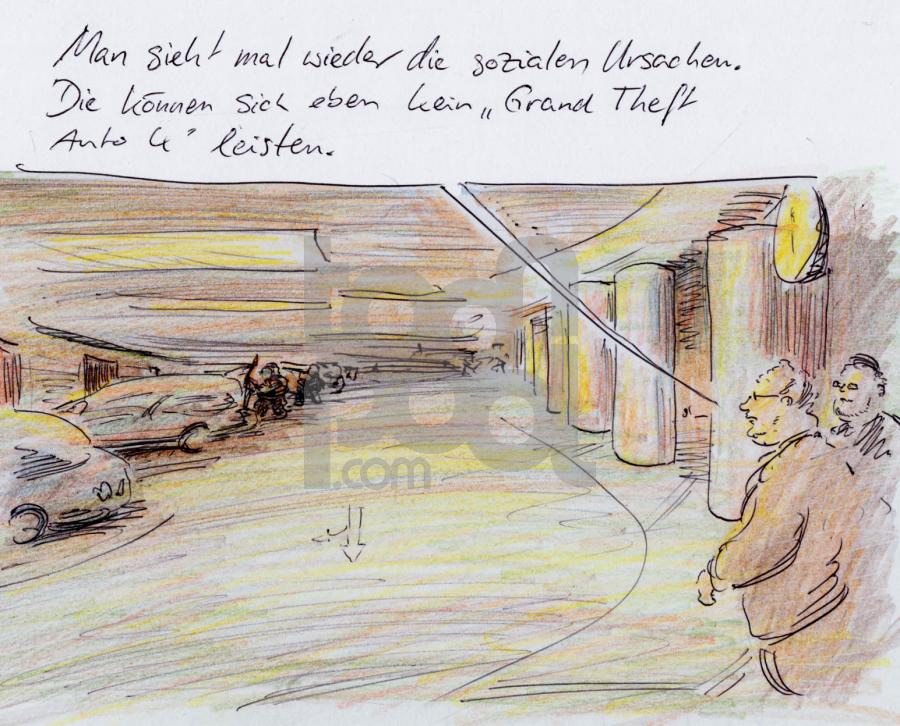 Man sieht mal wieder die sozialen Ursachen.
Die können sich eben kein „Grand Theft
Auto 4“ leisten.
toonpool
.com